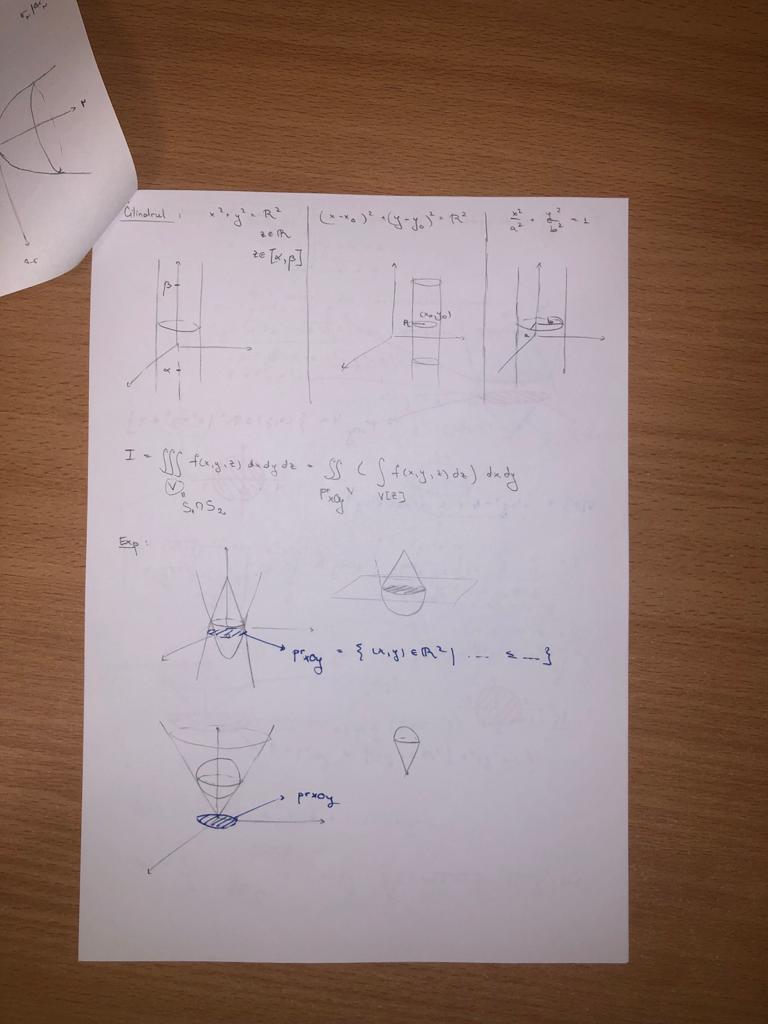 Cilindrul : x² + y² = R²
z ∈ R
z ∈ [α, β]
(x-x₀)² + (y-y₀)² = R²
x²/a² + y²/b² = 1
β
α
R (x₀,y₀)
a b
I = ∭ f(x,y,z) dx dy dz = ∬ ( ∫ f(x,y,z) dz ) dx dy
V pr xOy V V[z]
S₁ ∩ S₂
Exp :
pr xOy = { (x,y) ∈ R² | ... ≤ ... }
pr xOy